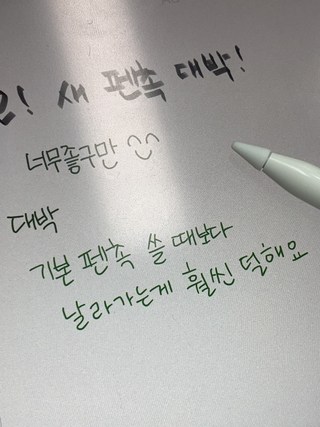 오! 새 펜촉 대박!
너무좋구만 ^^
대박
기본 펜촉 쓸 때보다
날라가는게 훨씬 덜해요